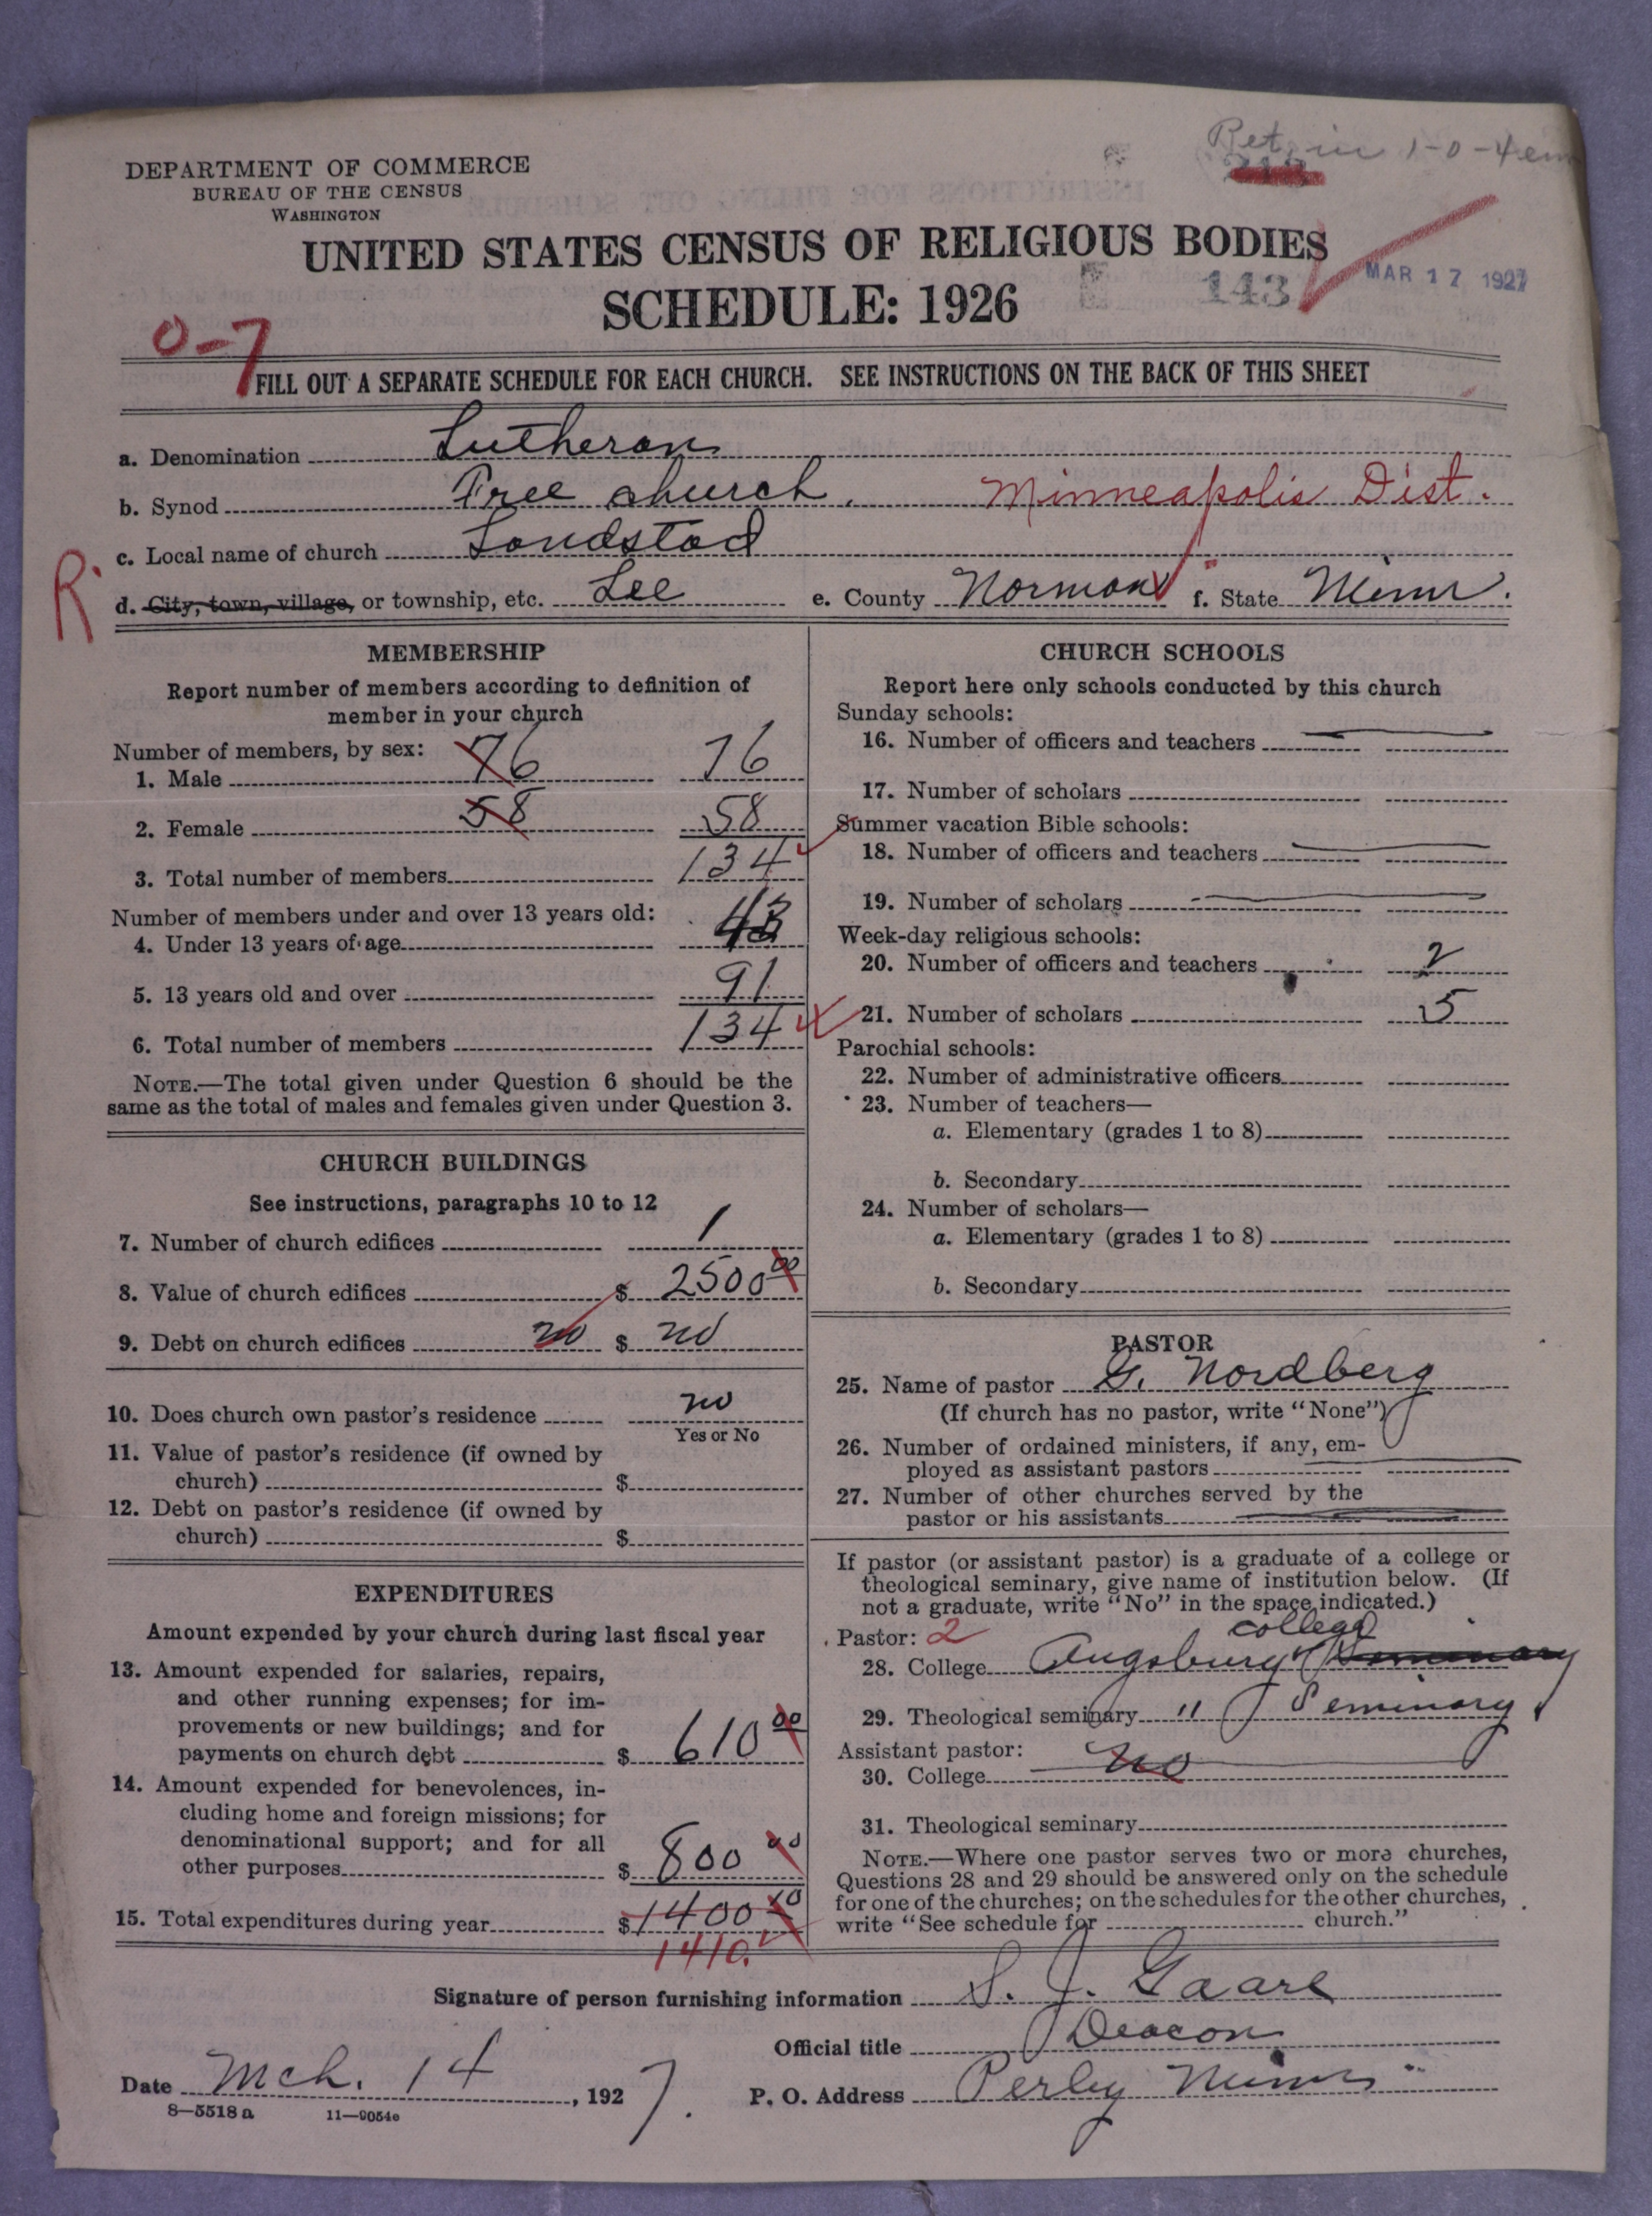 Ret. in 1-0-4
DEPARTMENT OF COMMERCE
BUREAU OF THE CENSUS
WASHINGTON
UNITED STATES CENSUS OF RELIGIOUS BODIES
SCHEDULE: 1926
143
MAR 17 1927
0-7
FILL OUT A SEPARATE SCHEDULE FOR EACH CHURCH. SEE INSTRUCTIONS ON THE BACK OF THIS SHEET
a. Denomination Lutheran
b. Synod Free church. Minneapolis Dist.
c. Local name of church Landstad
R. d. City, town, village, or township, etc. Lee e. County Norman f. State Minn.
MEMBERSHIP
Report number of members according to definition of
member in your church
Number of members, by sex:
1. Male 76 76
2. Female 58 58
3. Total number of members 134
Number of members under and over 13 years old:
4. Under 13 years of age 43
5. 13 years old and over 91
6. Total number of members 134
NOTE.—The total given under Question 6 should be the
same as the total of males and females given under Question 3.
CHURCH BUILDINGS
See instructions, paragraphs 10 to 12
7. Number of church edifices 1
8. Value of church edifices $ 2500 00
9. Debt on church edifices no $ no
10. Does church own pastor's residence no
Yes or No
11. Value of pastor's residence (if owned by
church) $
12. Debt on pastor's residence (if owned by
church) $
EXPENDITURES
Amount expended by your church during last fiscal year
13. Amount expended for salaries, repairs,
and other running expenses; for im-
provements or new buildings; and for
payments on church debt $ 610 00
14. Amount expended for benevolences, in-
cluding home and foreign missions; for
denominational support; and for all
other purposes $ 800 00
15. Total expenditures during year $ 1400 10
1410.
CHURCH SCHOOLS
Report here only schools conducted by this church
Sunday schools:
16. Number of officers and teachers
17. Number of scholars
Summer vacation Bible schools:
18. Number of officers and teachers
19. Number of scholars
Week-day religious schools:
20. Number of officers and teachers 2
21. Number of scholars 15
Parochial schools:
22. Number of administrative officers
23. Number of teachers—
a. Elementary (grades 1 to 8)
b. Secondary
24. Number of scholars—
a. Elementary (grades 1 to 8)
b. Secondary
PASTOR
25. Name of pastor G. Nordberg
(If church has no pastor, write "None")
26. Number of ordained ministers, if any, em-
ployed as assistant pastors
27. Number of other churches served by the
pastor or his assistants
If pastor (or assistant pastor) is a graduate of a college or
theological seminary, give name of institution below. (If
not a graduate, write "No" in the space indicated.)
Pastor: 2 college
28. College Augsburg Seminary
29. Theological seminary " Seminary
Assistant pastor:
30. College no
31. Theological seminary
NOTE.—Where one pastor serves two or more churches,
Questions 28 and 29 should be answered only on the schedule
for one of the churches; on the schedules for the other churches,
write "See schedule for church."
Signature of person furnishing information S. J. Gaare
Official title Deacon
Date Mch. 14, 1927. P. O. Address Perley Minn
8—5518 a 11—9054c